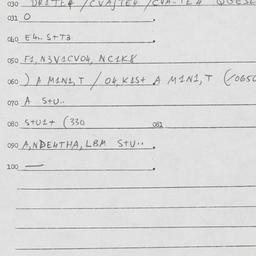 030 DR1TL4 / CVAJTE4 / CVA-TE4 QGESE
031 O .
040 E4.. S+T3 .
050 F1, N3V1CV04, NC1K8 .
060 ) A M1N1, T / O4, K1S+ A M1N1, T (/065
070 A S+U.. .
080 S+U1+ (330 081 .
090 A, NDE4THA, LBM S+U.. .
100 — .